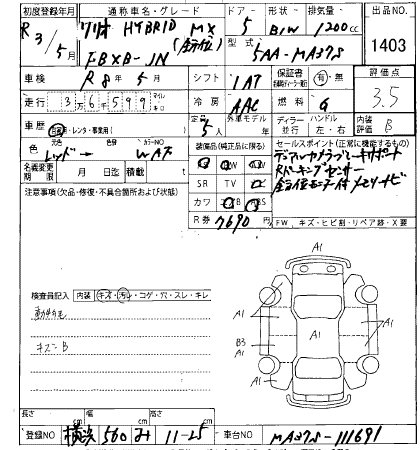 初度登録年月 通称車名・グレード ドア 形状 排気量 出品No.
R3/5月 ソリオ HYBRID MX (全方位) 5 B/W 1200cc 1403
FBXB-JN 型式 5AA-MA37S
車検 R8年5月 シフト IAT 保証書 有・無 評価点
走行 36599 マイル キロ 冷房 AAC 燃料 G 3.5
車歴 自家用・レンタ・事業用( ) 定員 5人 外車モデル 年 ディーラー・並行 ハンドル 左・右 内装評価 B
色 元色 レッド 色替 カラーNo.
装備品(純正品に限る) セールスポイント(正常に機能するもの)
デュアルカメラブレーキサポート
Rパーキングセンサー
全方位モニター付メモリーナビ
名義変更期限 月 日迄 積載 t SR TV
注意事項(欠品・修復・不具合箇所および状態) カワ
R券 7690円 FW キズ・ヒビ割・リペア跡・X要
A1
A1 A1
検査員記入 内装 キズ・汚レ・コゲ・穴・スレ・キレ
A1 A1
B3
A1
キズB
A1
A1
長さ cm 幅 cm 高さ cm
登録No 横浜 560 み 11-25 車台No MA37S-111691